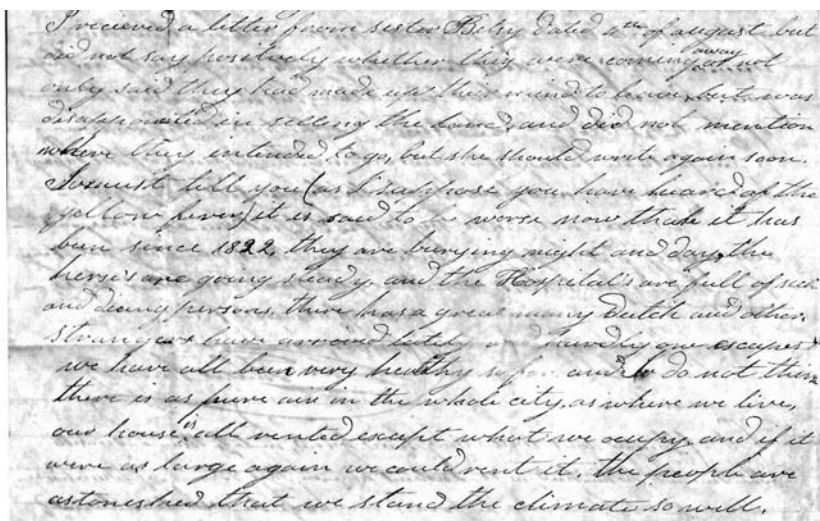 I recieved a letter from sister Betsy dated 4th of august but
did not say positively whether they were coming away or not
only said they had made up their mind to leave, but was
disappointed in selling the land, and did not mention
where they intended to go, but she should write again soon.
I must tell you (as I suppose you have heard of the
yellow fever) it is said to be worse now than it has
been since 1822, they are burying night and day, the
herses are going steady, and the Hospital's are full of sick
and dieing persons, there has a great many Dutch and other
strangers have arrived lately and hardly one escapes
we have all been very healthy so far and do not think
there is as pure air in the whole city, as where we live,
our house is all rented except what we ocupy, and if it
were as large again we could rent it. the people are
astoneshed that we stand the climate so well.